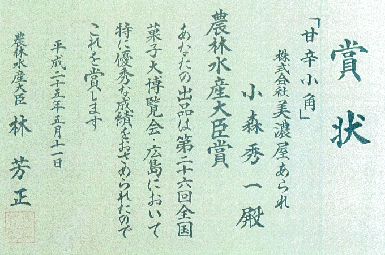 賞状
「甘辛小角」
株式会社美濃屋あられ
小森秀一殿
農林水産大臣賞
あなたの出品は第二十六回全国
菓子大博覧会・広島において
特に優秀な成績をおさめられたので
これを賞します
平成二十五年五月十一日
農林水産大臣 林芳正